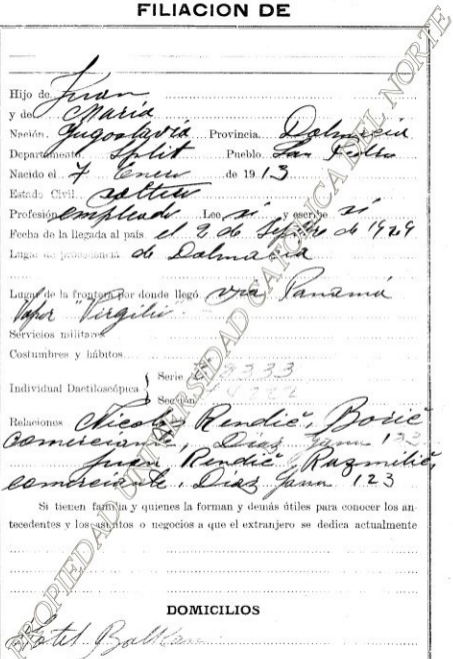 FILIACION DE
Hijo de Juan
y de Maria
Nación. Jugoslavia Provincia. Dalmacia
Departamento. Split Pueblo. San Pedro
Nacido el 7 Enero de 1913
Estado Civil soltero
Profesión empleado Leo si y escribe si
Fecha de la llegada al país el 2 de Sepbre de 1929
Lugar de procedencia de Dalmacia
Lugar de la frontera por donde llegó via Panamá
Vapor "Virgilio"
Servicios militares
Costumbres y hábitos
Individual Dactiloscópica Serie 3333
Sección 4222
Relaciones Nicolas Rendić, Borić
comerciante, Diaz Gana 123
Juan Rendić, Razmilić,
comerciante, Diaz Gana 123
Si tienen familia y quienes la forman y demás útiles para conocer los an-
tecedentes y los asuntos o negocios a que el extranjero se dedica actualmente
DOMICILIOS
Hotel Balkan
PROPIEDAD UNIVERSIDAD CATOLICA DEL NORTE